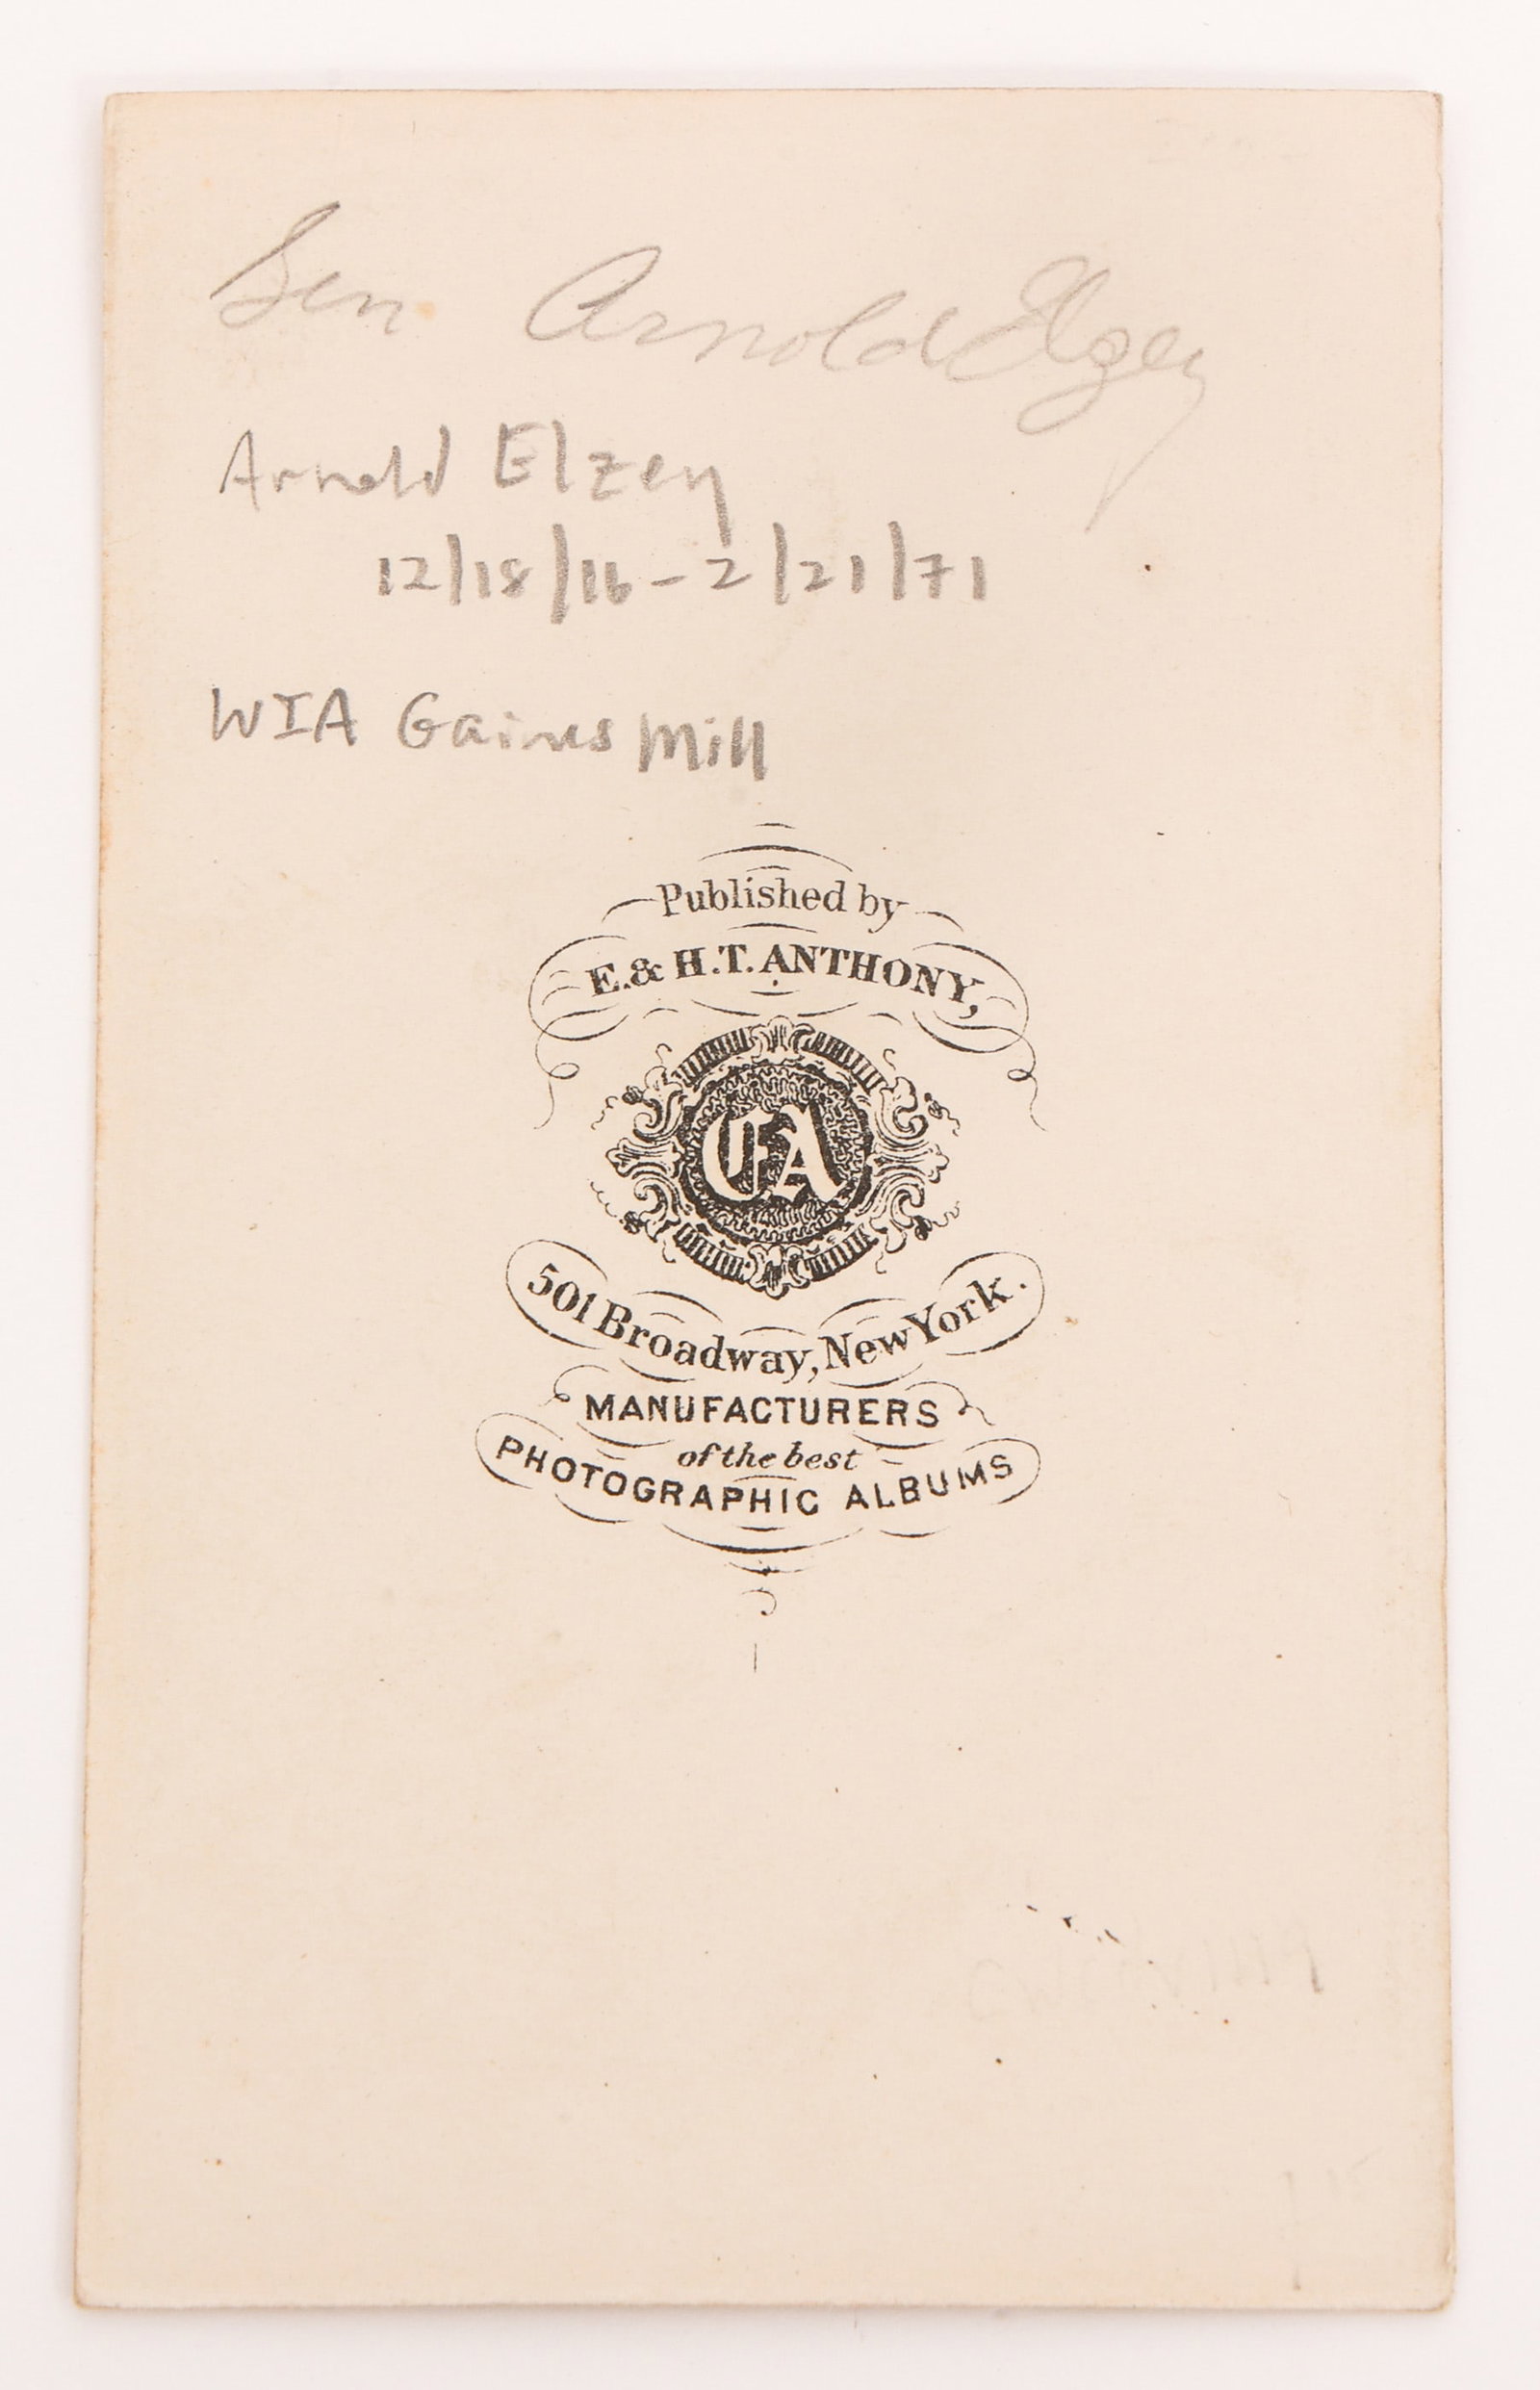 Gen Arnold Elzey
Arnold Elzey
12/18/16 - 2/21/71
WIA Gaines Mill
Published by
E. & H. T. ANTHONY,
EA
501 Broadway, New York.
MANUFACTURERS
of the best
PHOTOGRAPHIC ALBUMS